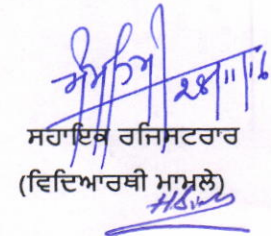 28/11/16
ਸਹਾਇਕ ਰਜਿਸਟਰਾਰ
(ਵਿਦਿਆਰਥੀ ਮਾਮਲੇ)